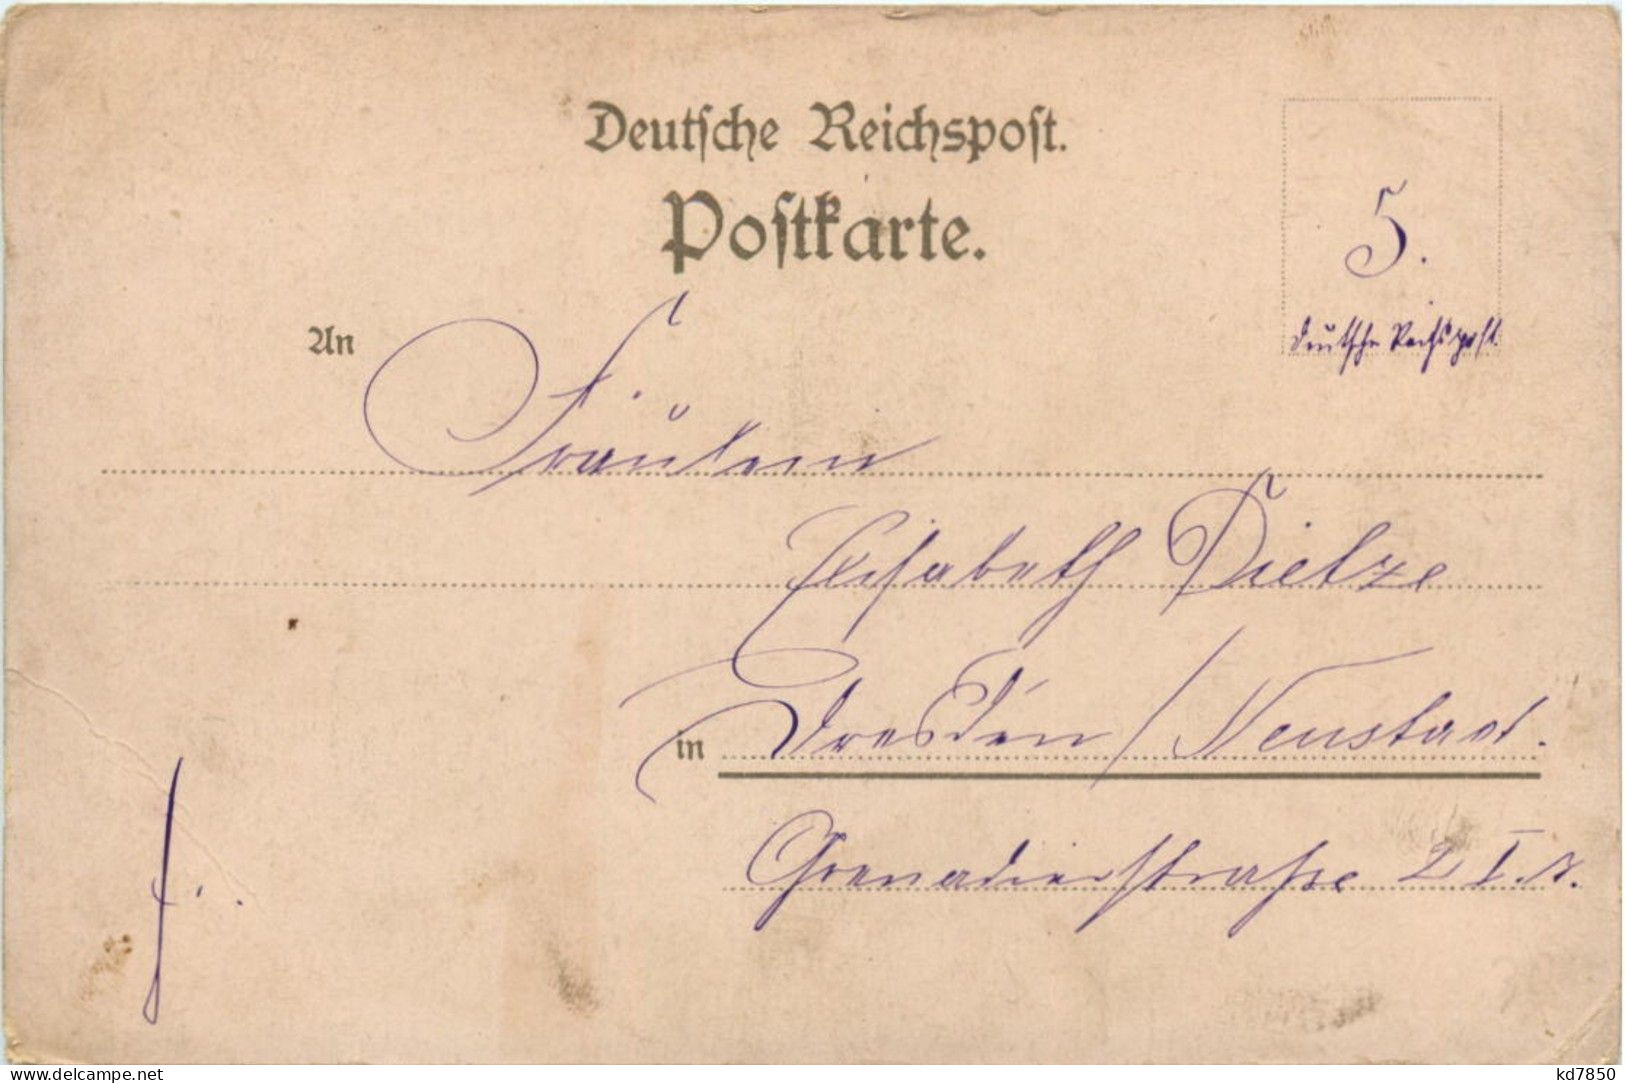 Deutsche Reichspost.
Postkarte.
5.
Deutsche Reichspost.
An
Fräulein
Elisabeth Dietze
in Dresden/Neustadt.
Grenadierstraße 2 I. r.
f.
www.delcampe.net
kd7850